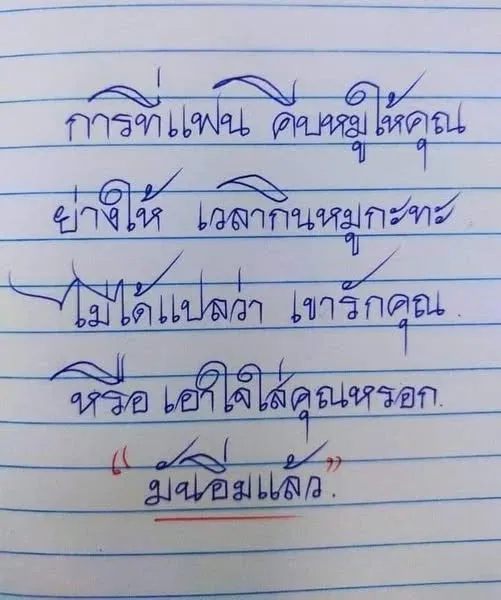 การที่แฟน คีบหมูให้คุณ
ย่างให้ เวลากินหมูกะทะ
ไม่ได้แปลว่า เขารักคุณ.
หรือ เอาใจใส่คุณหรอก.
“มันอิ่มแล้ว.”